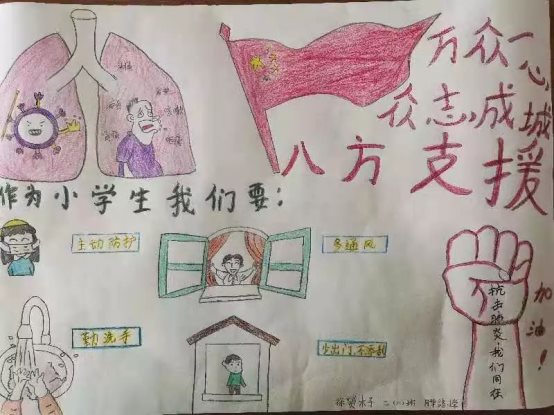 万众一心
众志成城
八方支援
作为小学生我们要：
主动防护
多通风
勤洗手
加油！
抗击肺炎，我们同在